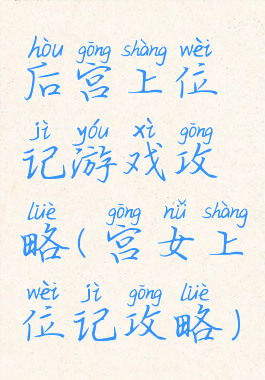 hòu gōng shàng wèi
后宫上位
jì yóu xì gōng
记游戏攻
lüè gōng nǚ shàng
略(宫女上
wèi jì gōng lüè
位记攻略)